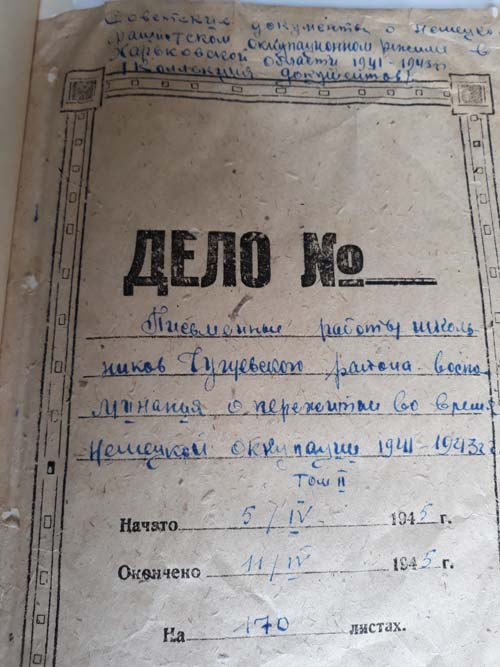 Советские документы о немецко
фашистском оккупационном режиме в
Харьковской области 1941-1943гг
(Коллекция документов)
ДЕЛО №
Письменные работы школь-
ников Чугуевского района воспо-
минания о пережитом во время
Немецкой оккупации 1941-1943г.г.
том II
Начато 5/IV 1945 г.
Окончено 11/IV 1945 г.
На 170 листах.